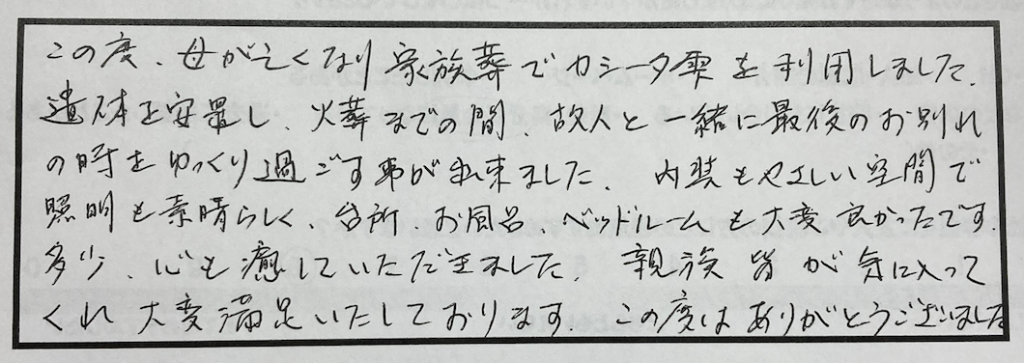 この度、母が亡くなり家族葬でカシータ雫を利用しました。
遺体を安置し、火葬までの間、故人と一緒に最後のお別れ
の時をゆっくり過ごす事が出来ました。 内装もやさしい空間で
照明も素晴らしく、台所、お風呂、ベッドルームも大変良かったです。
多少、心も癒していただきました。 親族皆が気に入って
くれ大変満足いたしております。 この度はありがとうございました